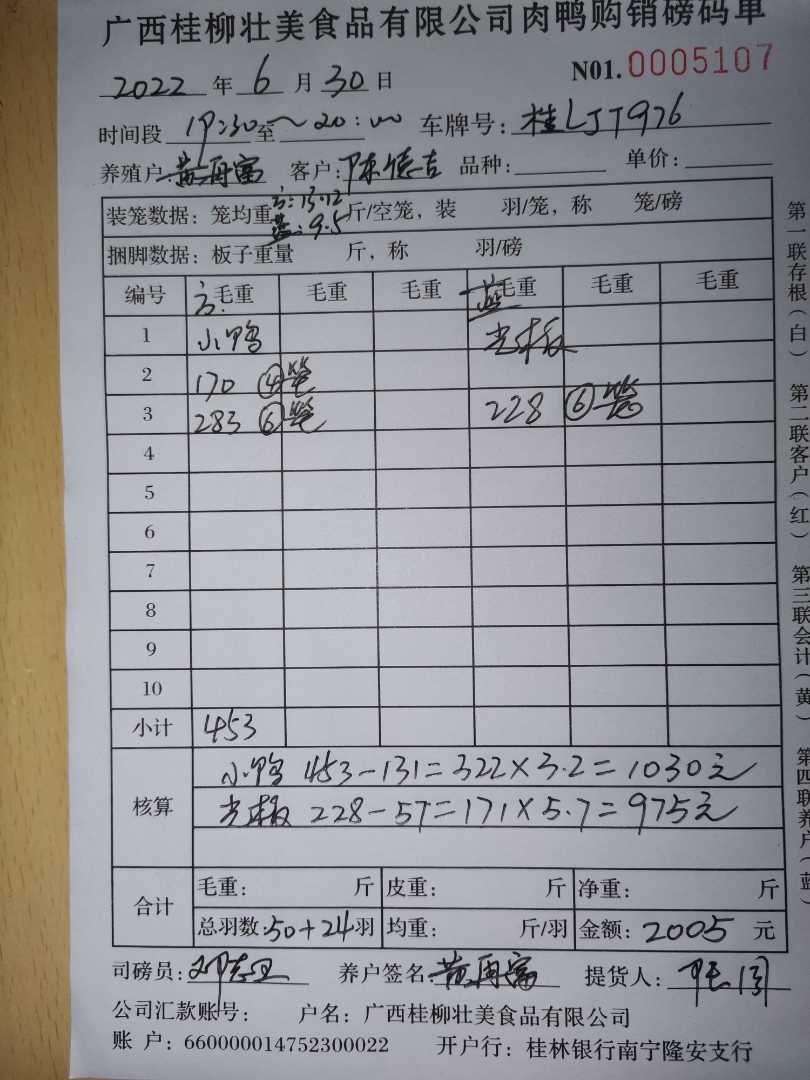 广西桂柳壮美食品有限公司肉鸭购销磅码单
2022 年 6 月 30 日 N01. 0005107
时间段 19:30 至 ~20:00 车牌号: 桂LJT976
养殖户 黄再富 客户: 陈德吉 品种: 单价:
装笼数据: 笼均重 方:13.12 蓝:9.5 斤/空笼, 装 羽/笼, 称 笼/磅
捆脚数据: 板子重量 斤, 称 羽/磅
编号 方: 毛重 毛重 毛重 蓝 毛重 毛重 毛重
1 小鸭 光板
2 170 ④笼
3 283 ⑥笼 228 ⑥笼
4
5
6
7
8
9
10
小计 453
核算 小鸭 453-131=322×3.2=1030元
光板 228-57=171×5.7=975元
合计 毛重: 斤 皮重: 斤 净重: 斤
总羽数: 50+24 羽 均重: 斤/羽 金额: 2005 元
司磅员: 养户签名: 黄再富 提货人:
公司汇款账号: 户名: 广西桂柳壮美食品有限公司
账 户: 660000014752300022 开户行: 桂林银行南宁隆安支行
第一联存根(白) 第二联客户(红) 第三联会计(黄) 第四联养户(蓝)